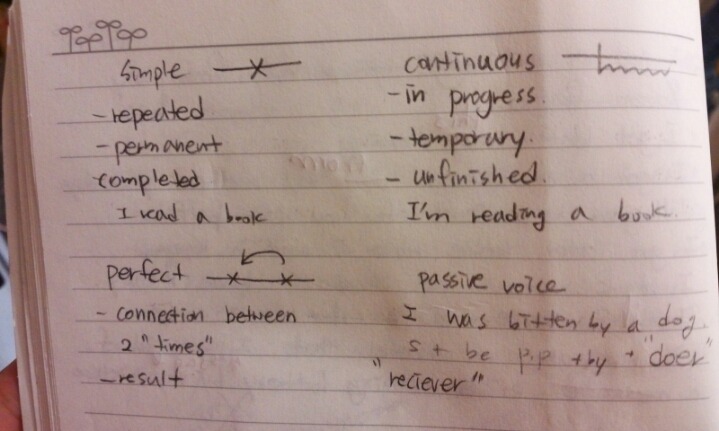 simple
- repeated
- permanent
completed
I read a book
continuous
- in progress.
- temporary.
- unfinished.
I'm reading a book.
perfect
- connection between
2 "times"
- result
passive voice
I was bitten by a dog.
s + be p.p + by + "doer"
"reciever"